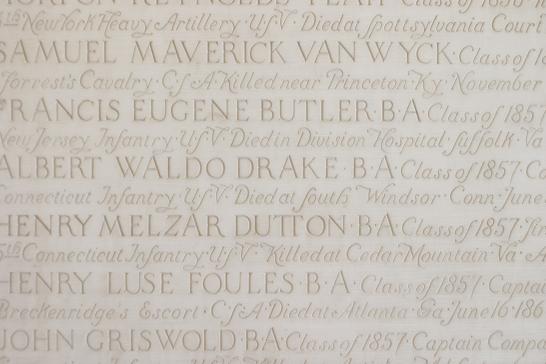 REYNOLDS Class of 1856
5th New York Heavy Artillery · U S V · Died at Spottsylvania Court
SAMUEL MAVERICK VAN WYCK · Class of
Forrest's Cavalry · C S A · Killed near Princeton · Ky · November
FRANCIS EUGENE BUTLER · B · A · Class of 1857
New Jersey Infantry · U S V · Died in Division Hospital · Suffolk · Va
ALBERT WALDO DRAKE · B · A · Class of 1857 · Co
Connecticut Infantry · U S V · Died at South Windsor · Conn · June
HENRY MELZAR DUTTON · B · A · Class of 1857 · Fir
5th Connecticut Infantry · U S V · Killed at Cedar Mountain · Va · A
HENRY LUSE FOULES · B · A · Class of 1857 · Captai
Breckenridge's Escort · C S A · Died at Atlanta · Ga · June 16 · 186
JOHN GRISWOLD · B · A · Class of 1857 · Captain Compa